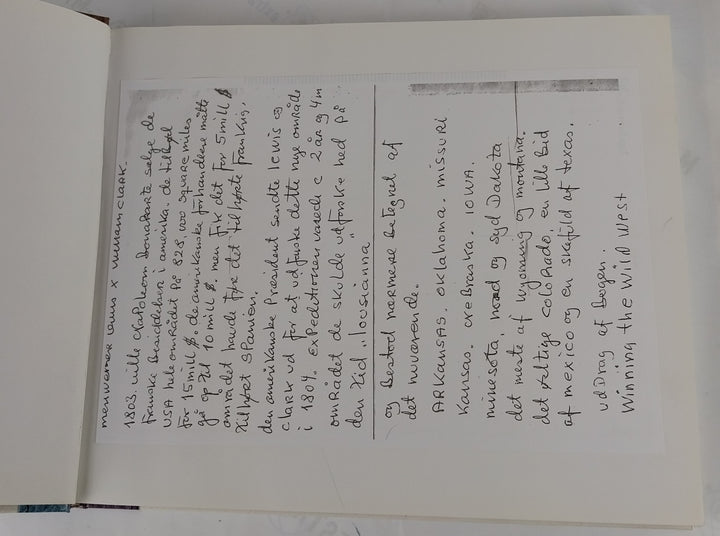 meriwether lewis x william clark.
1803. ville Napoleon Bonaparte sælge de
franske besiddelser i amerika. de tilbød
USA hele området på 828,000 square miles
for 15 mill $. de amerikanske forhandlere måtte
gå op til 10 mill $, men fik det for 5 mill $
området havde før det tilhørte Frankrig.
tilhørt Spanien.
den amerikanske Præsident sendte lewis og
Clark ud for at udforske dette nye område
i 1804. Expeditionen varede c 2 år og 4 m
området de skulde udforske hed på
den tid "lousianna"
og bestod nærmere betegnet af
det nuværende.
ARKANSAS. OKlahoma. missuri
Kansas. NeBraska. IOWA.
minesota, nord og syd Dakota
det meste af Wyoming og montana.
det veltige coloRado, en lille bid
af mexico og en skefuld af texas.
udDrag af Bogen.
Winning the Wild West